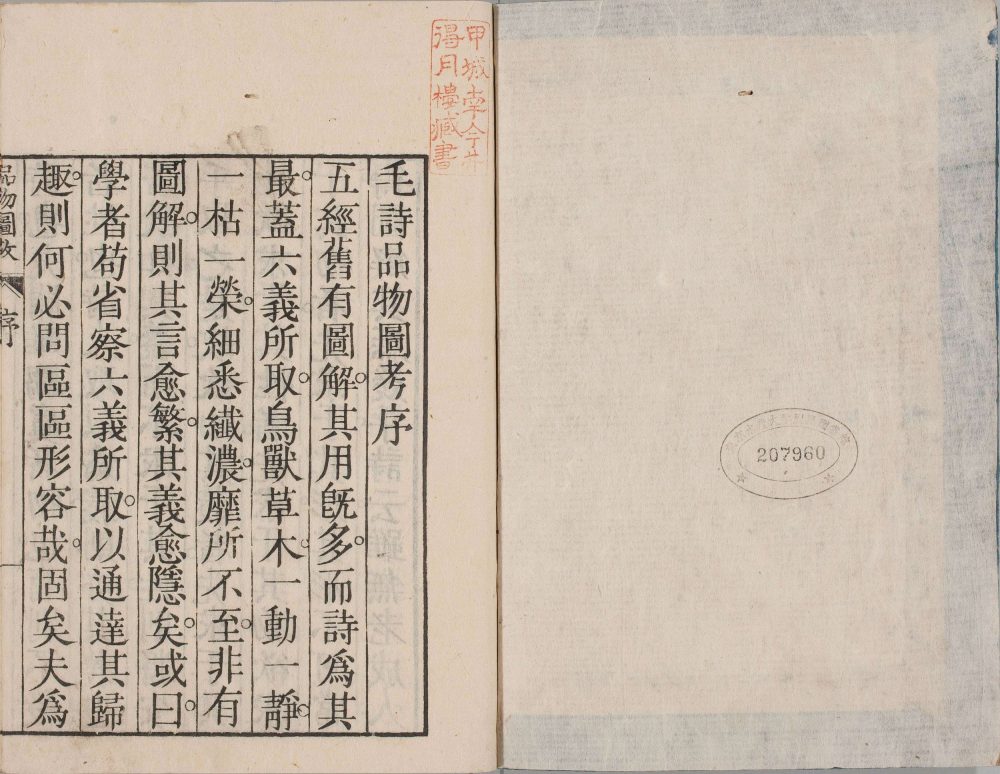 207960
得月樓藏書
毛詩品物圖考序
五經舊有圖解。其用旣多。而詩爲其
最。蓋六義所取。鳥獸草木。一動一靜。
一枯一榮。細悉纖濃。靡所不至。非有
圖解。則其言愈繁。其義愈隱矣。或曰。
學者苟省察六義所取。以通達其歸
趣。則何必問區區形容哉。固矣夫爲
品物圖攷 序